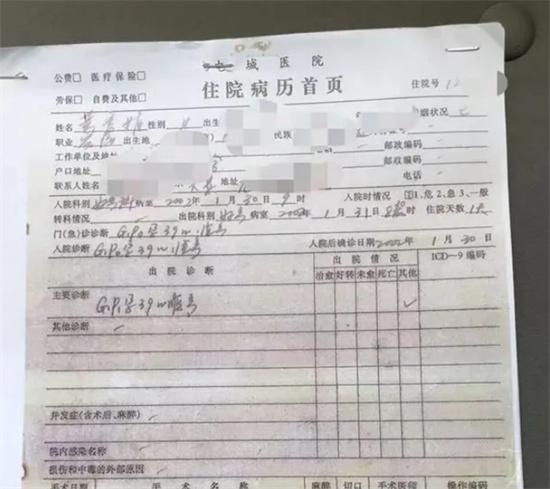 城医院
公费□ 医疗保险□
住院病历首页
住院号 12
劳保□ 自费及其他□
姓名 性别 出生 婚姻状况
职业 农民 出生地 民族 邮政编码
工作单位及地址 邮政编码
户口地址 电话 -
联系人姓名 地址
入院科别 妇产科 2002 年 1 月 30 日 9 时 入院时情况 1、危 2、急 3、一般
转科情况 - 出院科别 妇产 病室 2002 年 1 月 31 日 8 时 住院天数 1天
门(急)诊诊断 G1P0孕39W
入院诊断 G1P0孕39W 入院后确诊日期 2002 年 1 月 30 日
出院诊断 出院情况 ICD-9 编码
治愈 好转 未愈 死亡 其他
主要诊断 G1P1孕39W顺产 ✓
其他诊断 -
并发症(含术后、麻醉) -
院内感染名称 -
损伤和中毒的外部原因 -
手术日期 手术名称 麻醉 切口 手术医师 操作编码